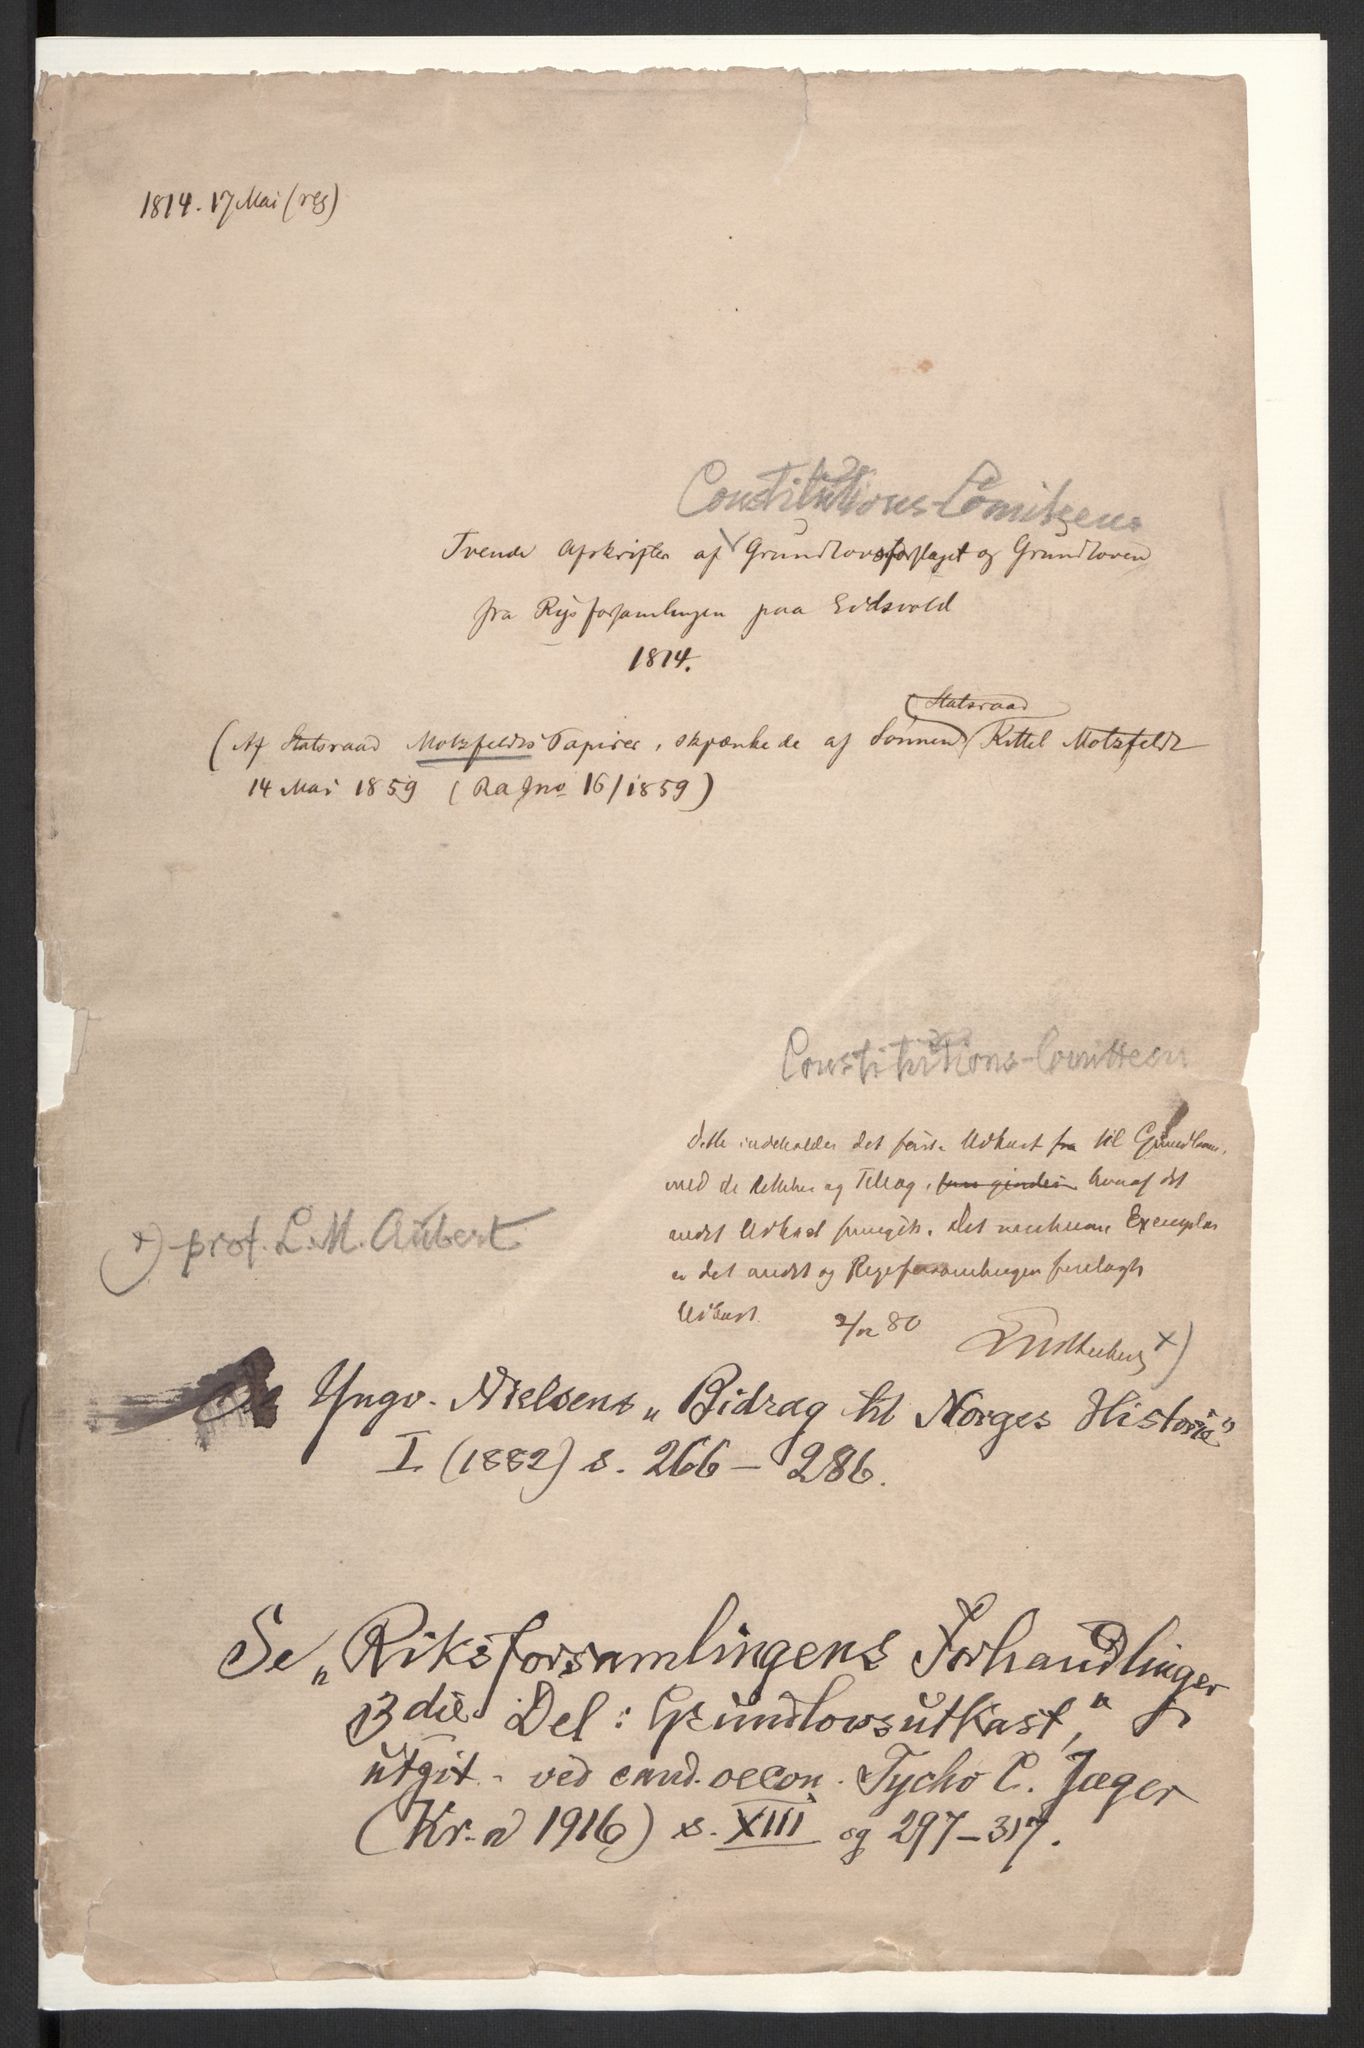 1814. 17 Mai (res)
Constitutions-Comiteens
Tvende Afskrifter af Grundlovsforslaget og Grundloven
fra Rigsforsamlingen paa Eidsvold
1814.
Statsraad
(Af Statsraad Motzfeldts Papirer, skjænkede af Sønnen Kittel Motzfeldt
14 Mai 1859 (Ra Jno 16/1859)
Constitutions-Comitteen
Dette indeholder det første Udkast fra til Grundloven,
med de Rettelser og Tillæg, hvoraf det
andet Udkast fremgik. Det Exemplar
er det andet og Rigsforsamlingen forelagte
Udkast. 2/12 80
LMAubert x)
x) prof. L. M. Aubert
Se Yngv. Nielsens „Bidrag til Norges Historie"
I (1882) s. 266 - 286.
Se „Riksforsamlingens Forhandlinger
3die Del: Grundlovsutkast,"
utgit ved cand. oecon. Tycho C. Jæger
(Kr.a 1916) s. XIII og 297-317.